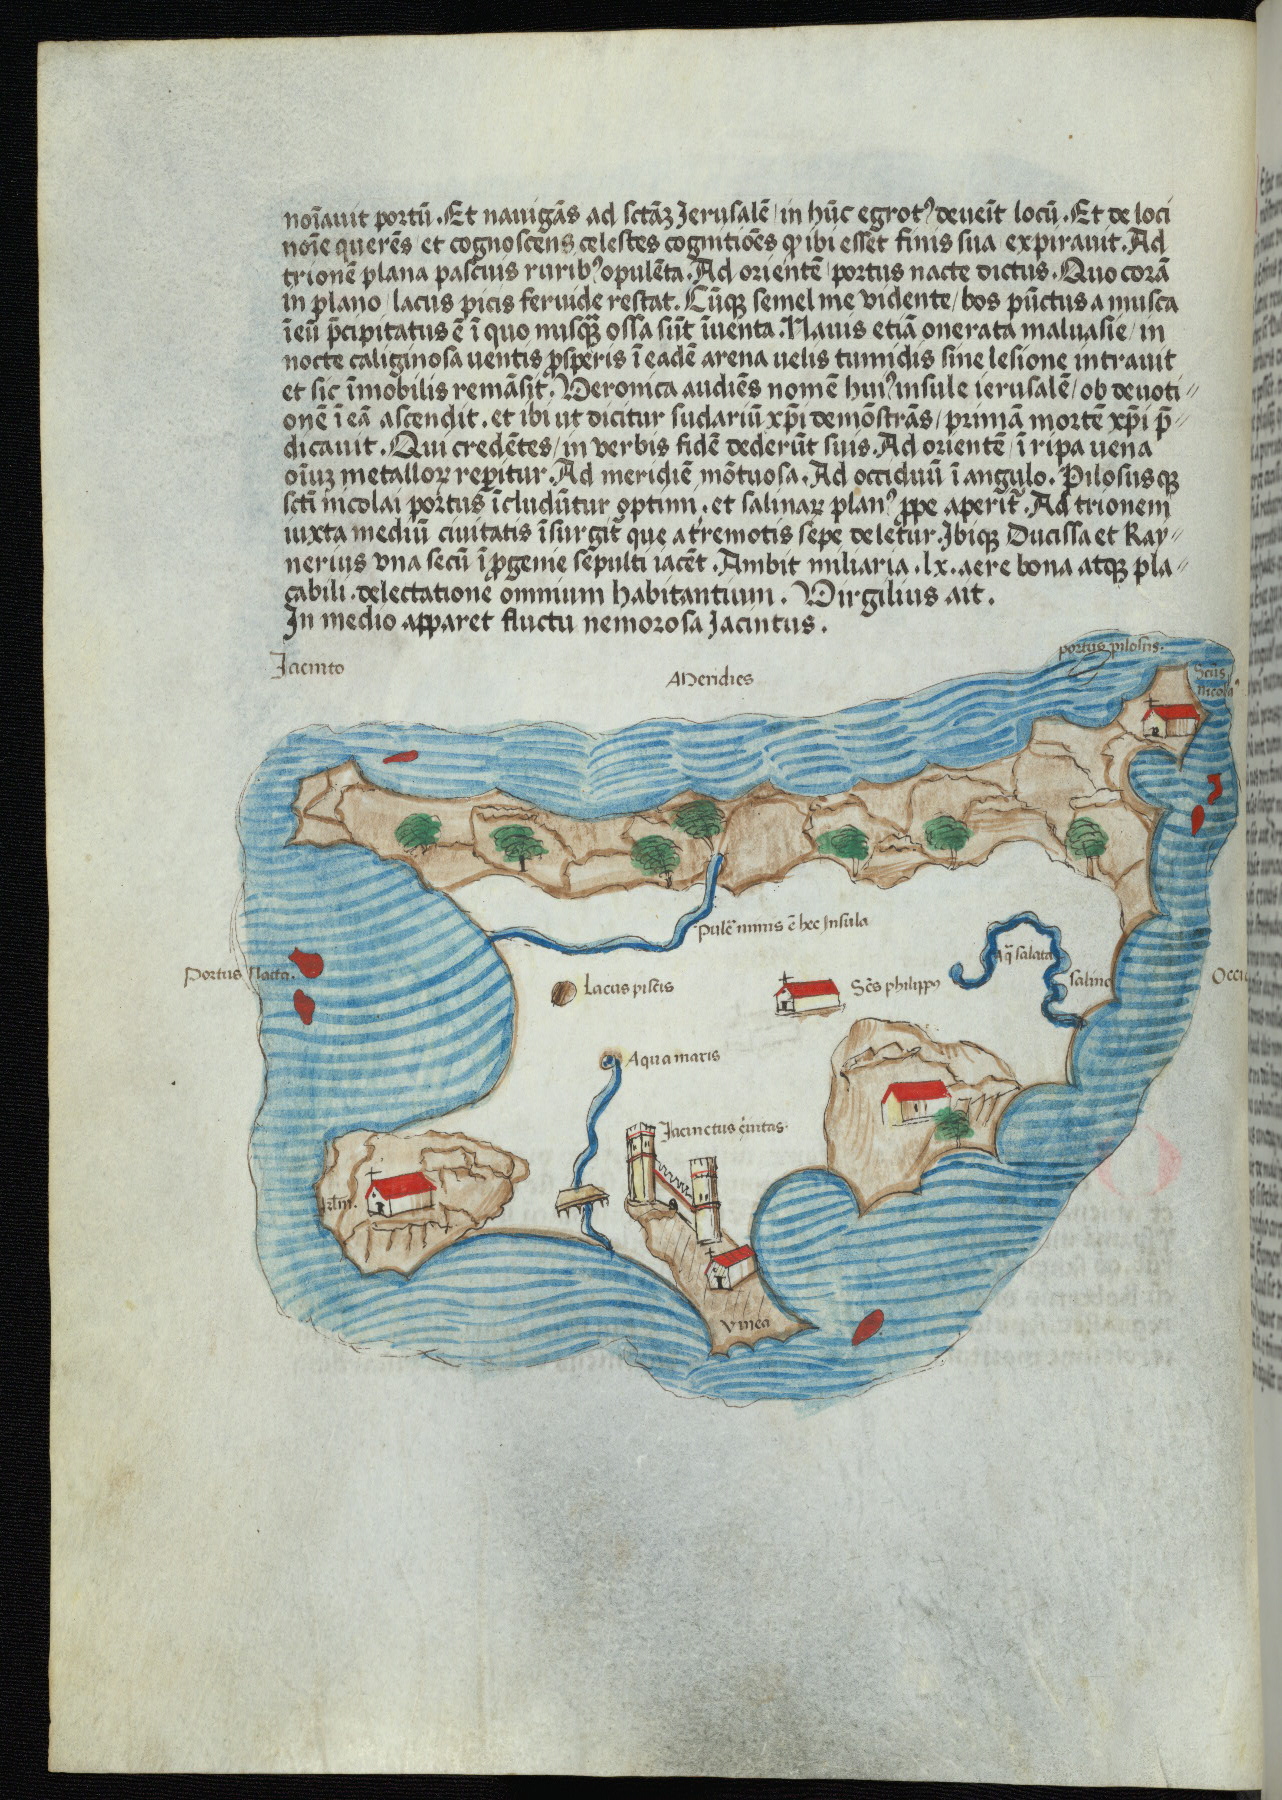 noīauit portū. Et nauigās ad sctāꝫ Jerusalē / in hūc egrotꝰ deueīt locū. Et de loci
noīe querēs et cognoscens celestes cognitiōēs ꝙ ibi esset finis sua expirauit. Ad
trionē plana pascuis ruribꝰ opulēta. Ad orientē / portus nacte dictus. Quo corā
in plano / lacus picis feruide restat. Cūqꝫ semel me vidente / bos pūctus a musca
ī eū p̄cipitatus ē ī quo nusqꝫ ossa sūt īuenta. Nauis etiā onerata maluasie / in
nocte caliginosa uentis ꝓsperis ī eadē arena uelis tumidis sine lesione intrauit
et sic īmobilis remāsit. Veronica audiēs nomē huiꝰ insule ierusalē / ob deuoti
onē ī eā ascendit. et ibi ut dicitur sudariū xp̄i demōstrās / primā mortē xp̄i p̄
dicauit. Qui credētes / in verbis fidē dederūt suis. Ad orientē / ī ripa uena
oīuꝫ metalloꝝ reꝑitur. Ad meridiē mōtuosa. Ad occiduū ī angulo. Pilosusqꝫ
scti nicolai portus īcludūtur optimi. et salinaꝝ planꝰ ꝓpe aperit̄. Ad trionem
iuxta mediū ciuitatis īsurgit̄ que a t̄remotis sepe deletur. Ibiqꝫ Ducissa et Ray
nerius vna secū ī ꝓgenie sepulti iacēt. Ambit miliaria .lx. aere bona atqꝫ pla
cabili. delectatione omnium habitantium. Virgilius ait.
In medio apparet fluctu nemorosa Jacintus.
Jacinto
portus pilosus.
Meridies
Scūs
Nicolaꝰ
Pulcr̄ nimis ē hec Insula
Aq̄ salata
Portus Nacta.
Lacus piscis
Scs̄ philippꝰ
Saline
Occi
Aqua maris
Jacinctus ciuitas.
Jrlm.
Vinea